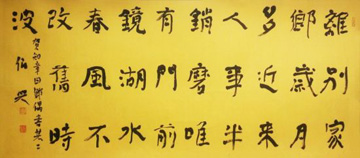 離別家
鄉歲月
多近来
人事半
銷磨唯
有門前
鏡湖水
春風不
改舊時
波
賀知章回鄉偶書其二